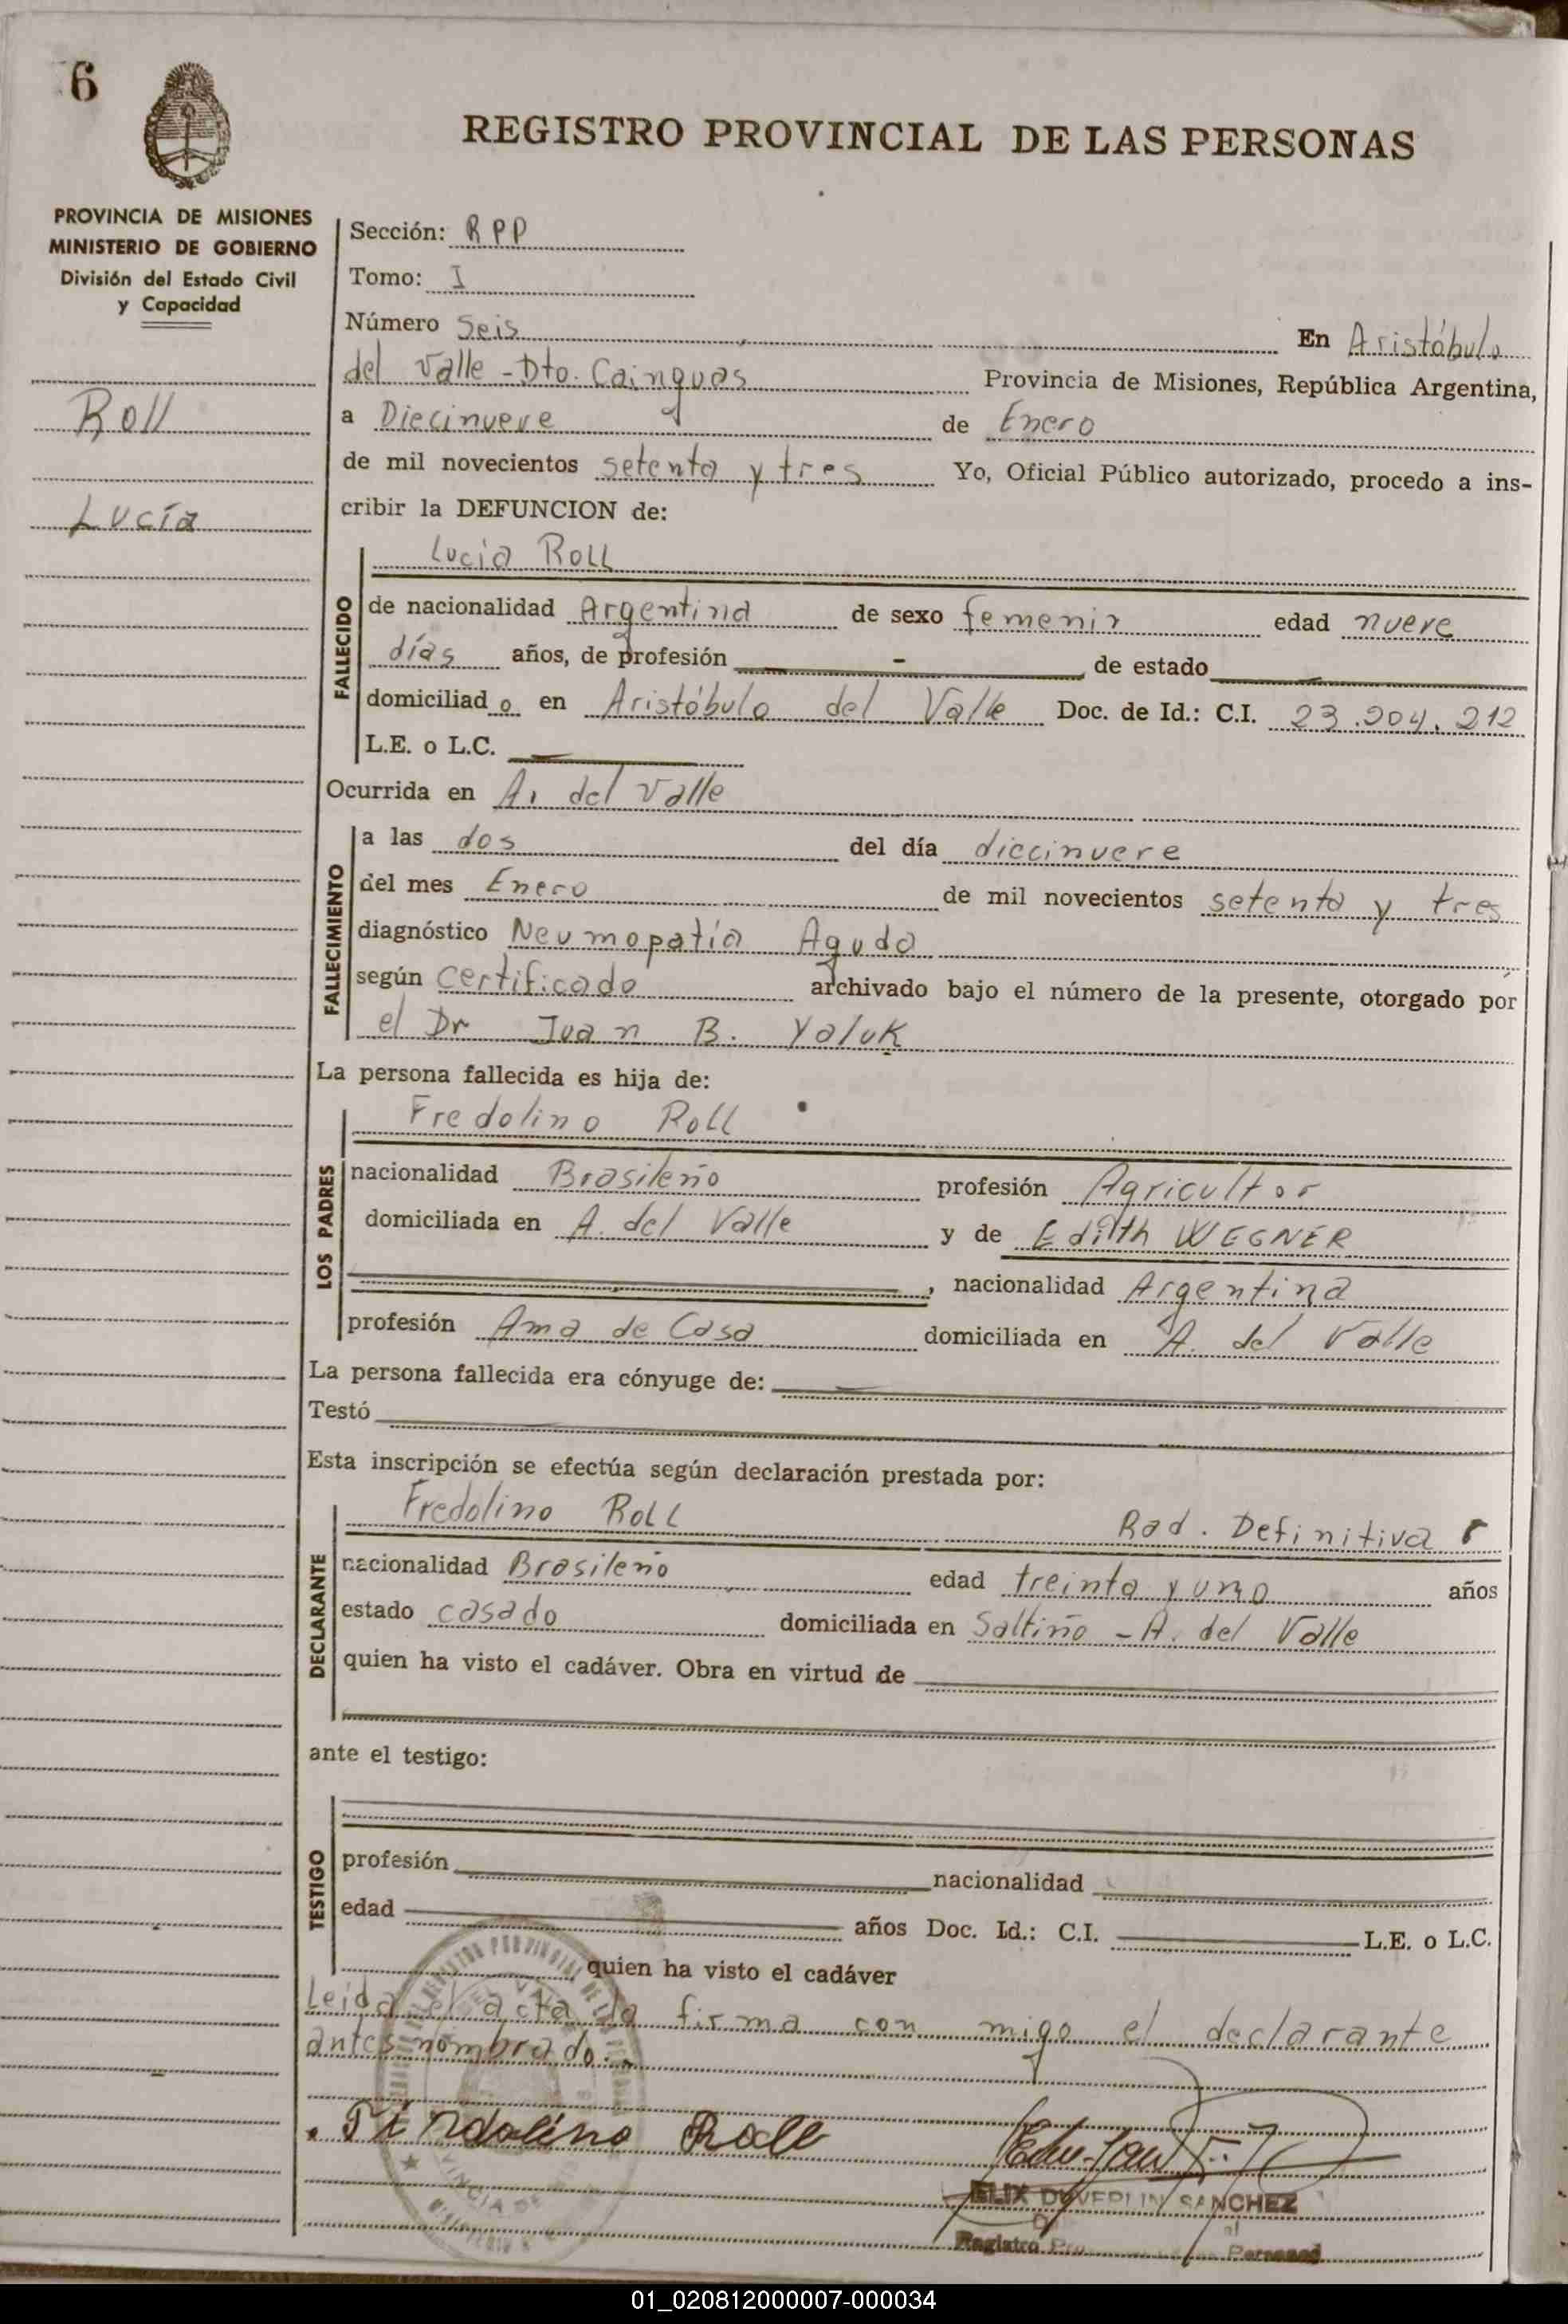 6
REGISTRO PROVINCIAL DE LAS PERSONAS
PROVINCIA DE MISIONES
MINISTERIO DE GOBIERNO
División del Estado Civil
y Capacidad
Roll
Lucía
Sección: RPP
Tomo: I
Número Seis En Aristóbulo
del Valle - Dto. Cainguas Provincia de Misiones, República Argentina,
a Diecinueve de Enero
de mil novecientos setenta y tres Yo, Oficial Público autorizado, procedo a ins-
cribir la DEFUNCION de:
Lucia Roll
FALLECIDO
de nacionalidad Argentina de sexo femenin edad nueve
días años, de profesión - de estado
domiciliad o en Aristóbulo del Valle Doc. de Id.: C.I. 23.204.212
L.E. o L.C.
Ocurrida en A. del Valle
FALLECIMIENTO
a las dos del día diecinueve
del mes Enero de mil novecientos setenta y tres
diagnóstico Neumopatía Aguda
según certificado archivado bajo el número de la presente, otorgado por
el Dr Juan B. Yaluk
La persona fallecida es hija de:
Fredolino Roll
LOS PADRES
nacionalidad Brasileño profesión Agricultor
domiciliada en A. del Valle y de Edith WEGNER
, nacionalidad Argentina
profesión Ama de Casa domiciliada en A. del Valle
La persona fallecida era cónyuge de:
Testó
Esta inscripción se efectúa según declaración prestada por:
Fredolino Roll Rad. Definitiva
DECLARANTE
nacionalidad Brasileño edad treinta y uno años
estado casado domiciliada en Saltiño - A. del Valle
quien ha visto el cadáver. Obra en virtud de
ante el testigo:
TESTIGO
profesión nacionalidad
edad años Doc. Id.: C.I. L.E. o L.C.
quien ha visto el cadáver
Leida el acta la firma con migo el declarante
antes nombrado.-
Roll
SANCHEZ
Registro
01_020812000007-000034